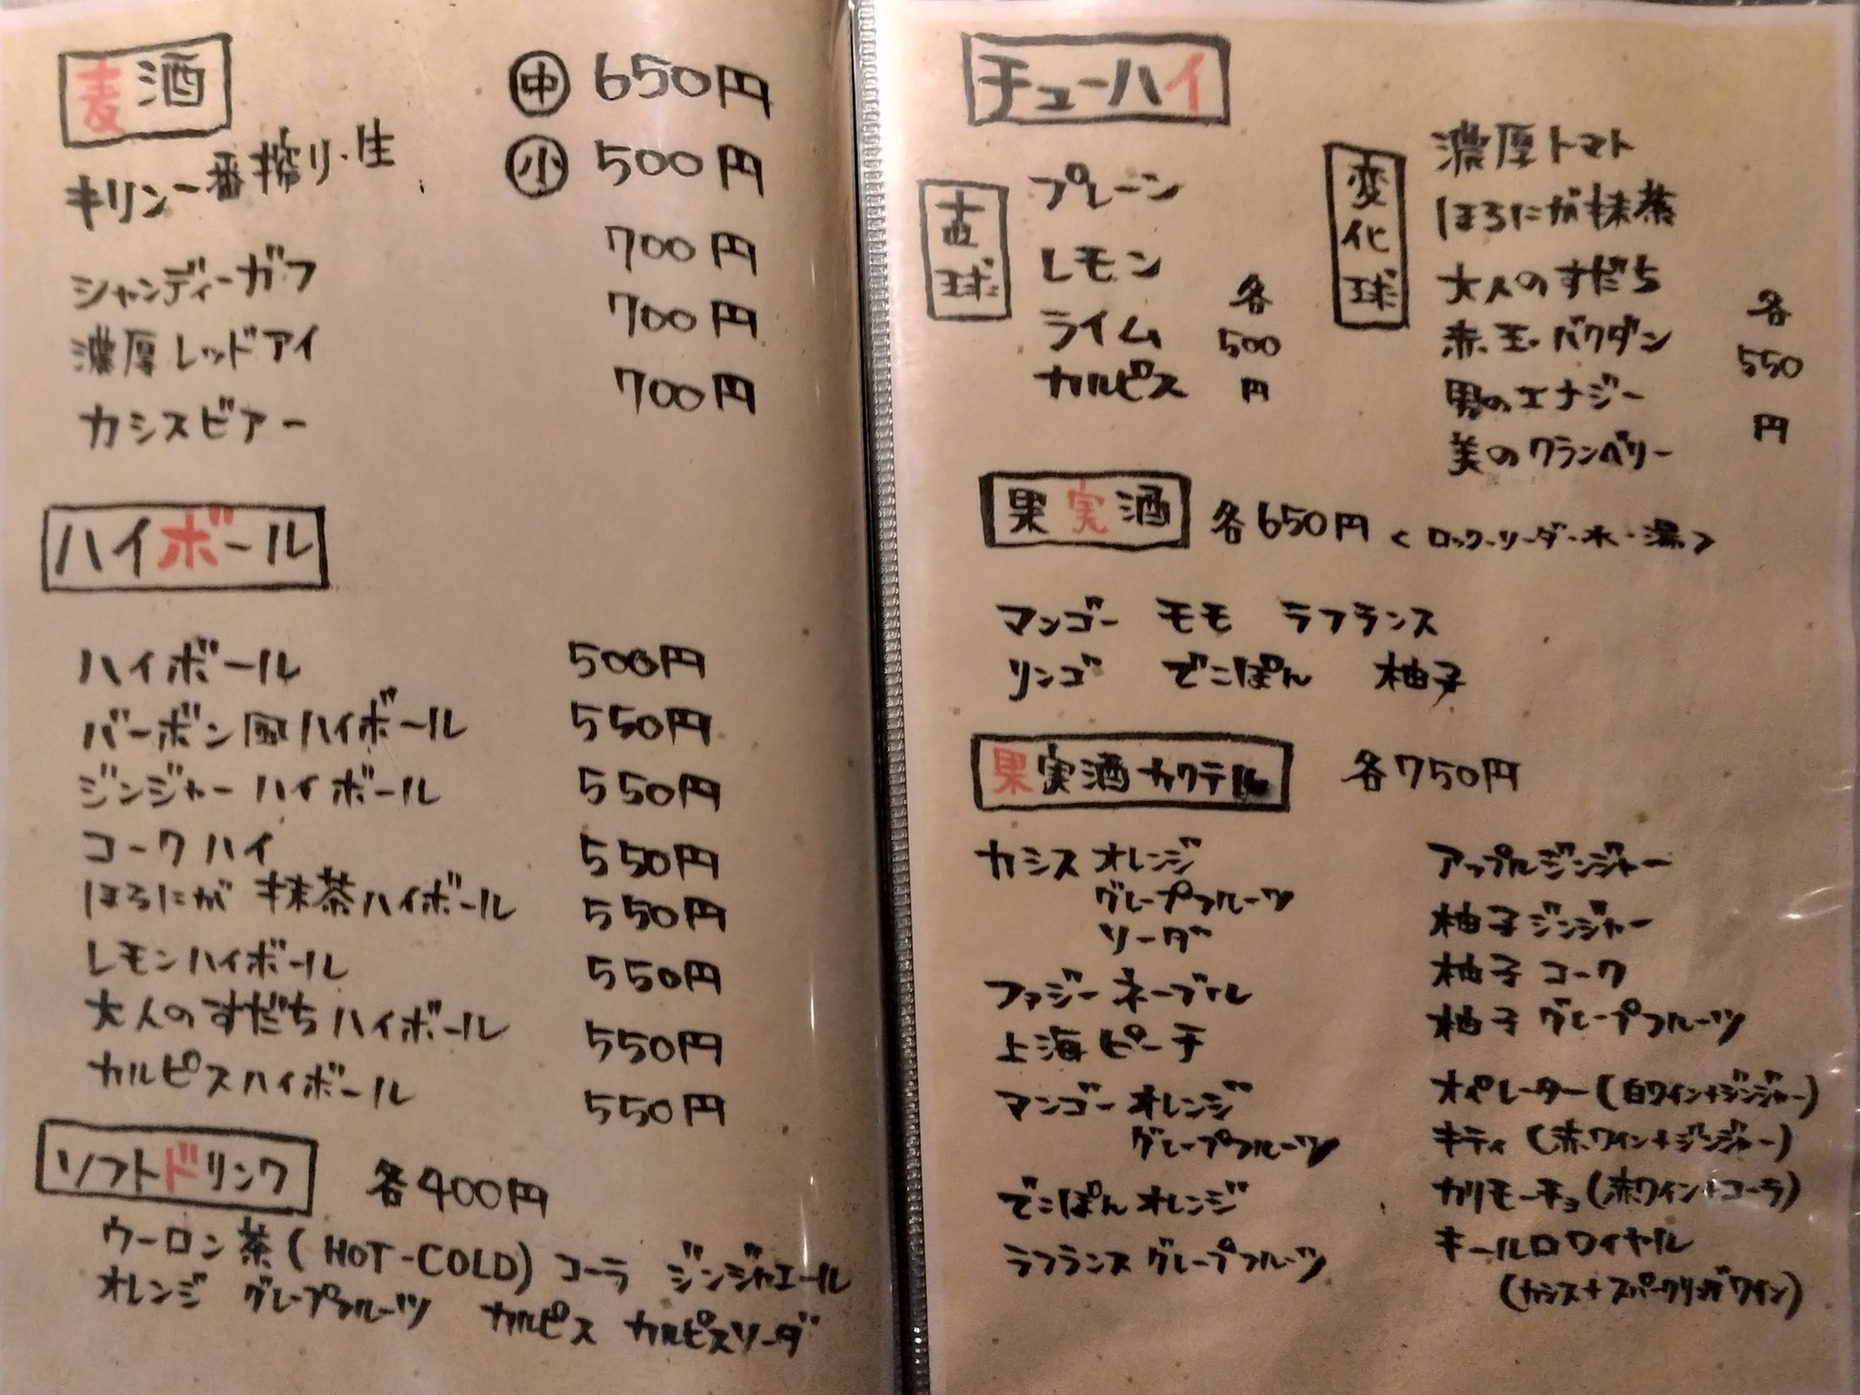 麦酒
キリン一番搾り・生 ㊥ 650円
㊙小 500円
シャンディーガフ 700円
濃厚レッドアイ 700円
カシスビアー 700円
ハイボール
ハイボール 500円
バーボン風ハイボール 550円
ジンジャーハイボール 550円
コークハイ 550円
ほろにが抹茶ハイボール 550円
レモンハイボール 550円
大人のすだちハイボール 550円
カルピスハイボール 550円
ソフトドリンク 各400円
ウーロン茶(HOT-COLD) コーラ ジンジャエール
オレンジ グレープフルーツ カルピス カルピスソーダ
チューハイ
直球
プレーン
レモン
ライム
カルピス
各
500
円
変化球
濃厚トマト
ほろにが抹茶
大人のすだち
赤玉・バクダン
男のエナジー
美のクランベリー
各
550
円
果実酒 各650円 <ロック・ソーダ・水・湯>
マンゴー モモ ラフランス
リンゴ でこぽん 柚子
果実酒カクテル 各750円
カシス オレンジ
グレープフルーツ
ソーダ
ファジーネーブル
上海ピーチ
マンゴー オレンジ
グレープフルーツ
でこぽん オレンジ
ラフランス グレープフルーツ
アップルジンジャー
柚子ジンジャー
柚子コーク
柚子グレープフルーツ
オペレーター(白ワイン+ジンジャー)
キティ(赤ワイン+ジンジャー)
カリモーチョ(赤ワイン+コーラ)
キールロワイヤル
(カシス+スパークリングワイン)